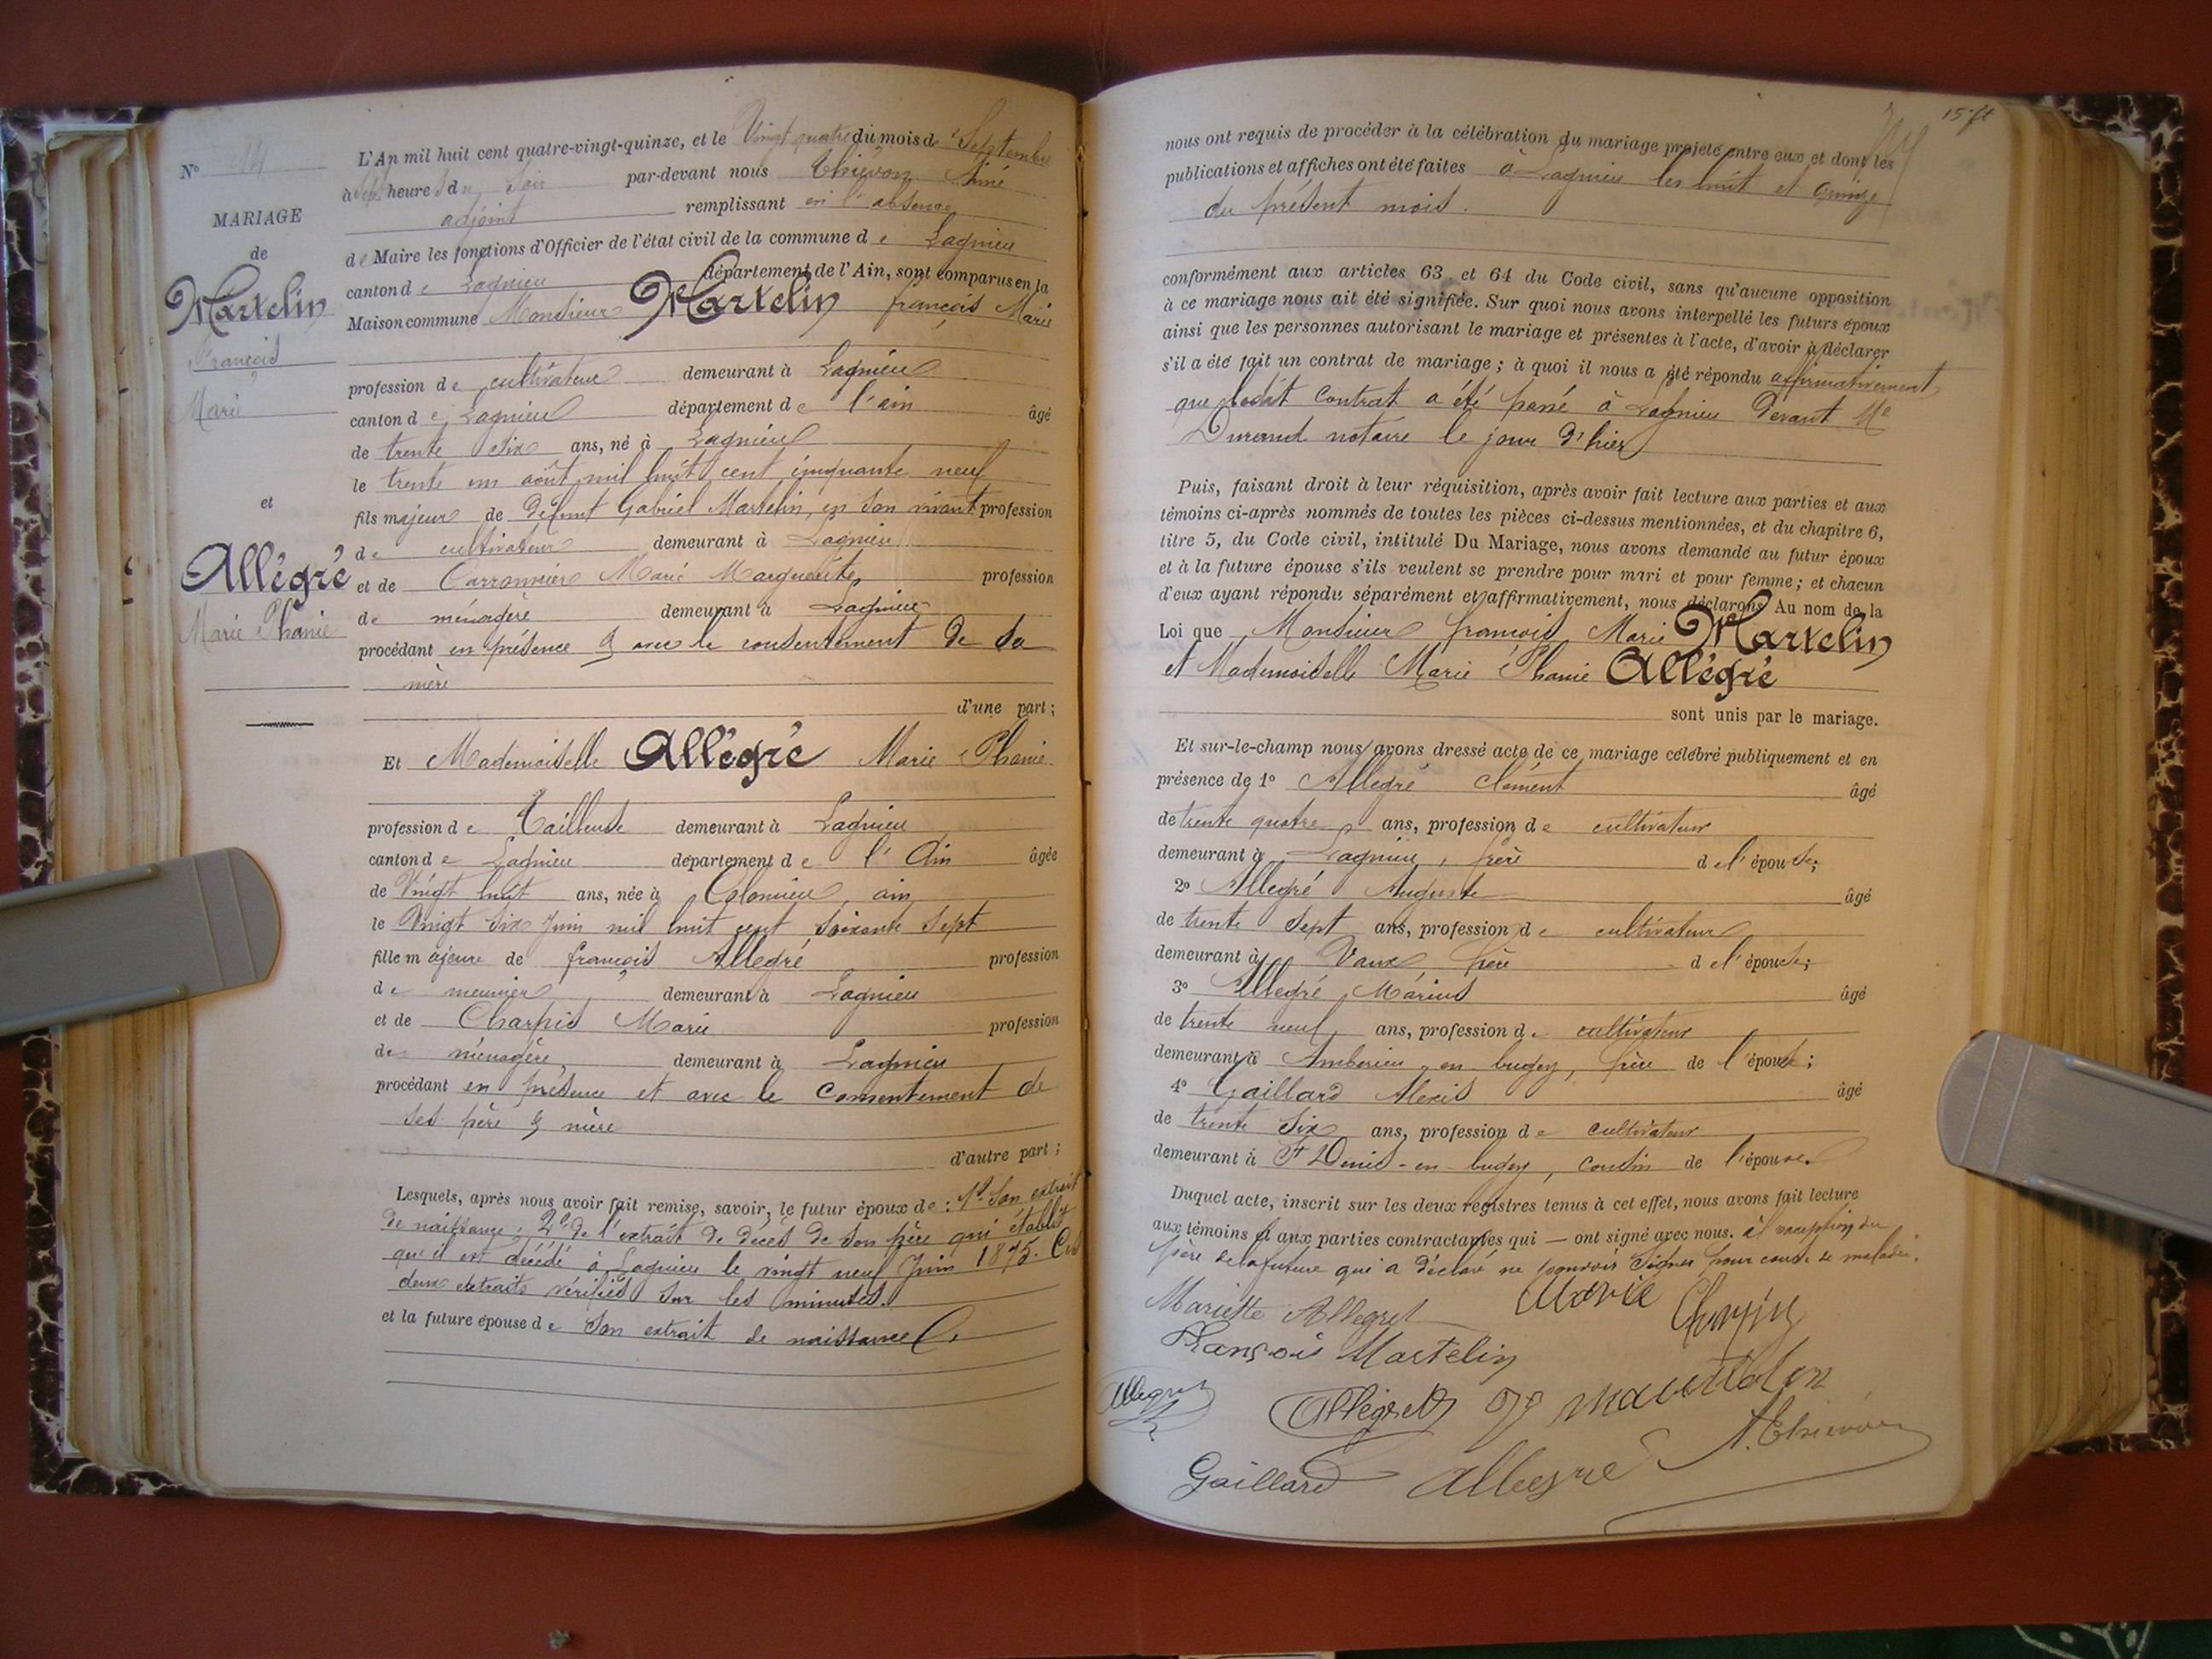 N° 14
MARIAGE
de
Martelin
François
Marie
et
Allégré
Marie Phanie
L'An mil huit cent quatre-vingt-quinze, et le Vingt quatre du mois de Septembre
à sept heures du soir par-devant nous Thiévon Aimé
adjoint remplissant en l'absence
de Maire les fonctions d'Officier de l'état civil de la commune de Lagnieu
canton de Lagnieu département de l'Ain, sont comparus en la
Maison commune Monsieur Martelin françois Marie
profession de cultivateur demeurant à Lagnieu
canton de Lagnieu département de l'ain âgé
de trente six ans, né à Lagnieu
le trente un août mil huit cent cinquante neuf
fils majeur de défunt Gabriel Martelin, en son vivant profession
de cultivateur demeurant à Lagnieu
et de Carronnier Marie Marguerite, profession
de ménagère demeurant à Lagnieu
procédant en présence & avec le consentement de sa
mère
d'une part;
Et Mademoiselle Allégré Marie Phanie
profession de Tailleuse demeurant à Lagnieu
canton de Lagnieu département de l'Ain âgée
de Vingt huit ans, née à Colomieu, ain
le Vingt six Juin mil huit cent soixante sept
fille majeure de françois Allegré profession
de meunier demeurant à Lagnieu
et de Charpis Marie profession
de ménagère, demeurant à Lagnieu
procédant en présence et avec le consentement de
ses père & mère
d'autre part;
Lesquels, après nous avoir fait remise, savoir, le futur époux de: 1° Son extrait
de naissance; 2° de l'extrait de décès de son père qui établit
qu'il est décédé à Lagnieu le vingt neuf Juin 1875. Ces
deux extraits vérifiés sur les minutes.
et la future épouse de Son extrait de naissance.
nous ont requis de procéder à la célébration du mariage projeté entre eux et dont les
publications et affiches ont été faites à Lagnieu les huit et quinze
du présent mois.
conformément aux articles 63 et 64 du Code civil, sans qu'aucune opposition
à ce mariage nous ait été signifiée. Sur quoi nous avons interpellé les futurs époux
ainsi que les personnes autorisant le mariage et présentes à l'acte, d'avoir à déclarer
s'il a été fait un contrat de mariage; à quoi il nous a été répondu affirmativement
que ledit contrat a été passé à Lagnieu devant Me
Durand notaire le jour d'hier
Puis, faisant droit à leur réquisition, après avoir fait lecture aux parties et aux
témoins ci-après nommés de toutes les pièces ci-dessus mentionnées, et du chapitre 6,
titre 5, du Code civil, intitulé Du Mariage, nous avons demandé au futur époux
et à la future épouse s'ils veulent se prendre pour mari et pour femme; et chacun
d'eux ayant répondu séparément et affirmativement, nous déclarons Au nom de la
Loi que Monsieur françois Marie Martelin
et Mademoiselle Marie Phanie Allégré
sont unis par le mariage.
Et sur-le-champ nous avons dressé acte de ce mariage célébré publiquement et en
présence de 1° Allegré Clément âgé
de trente quatre ans, profession de cultivateur
demeurant à Lagnieu, frère de l'épouse;
2° Allegré Auguste âgé
de trente sept ans, profession de cultivateur
demeurant à Vaux frère de l'épouse;
3° Allegré Marius âgé
de trente neuf ans, profession de cultivateur
demeurant à Amberieu en bugey, frère de l'épouse;
4° Gaillard Alexis âgé
de trente six ans, profession de cultivateur
demeurant à St Denis-en-bugey, cousin de l'épouse.
Duquel acte, inscrit sur les deux registres tenus à cet effet, nous avons fait lecture
aux témoins et aux parties contractantes qui — ont signé avec nous. à l'exception du
père de la future qui a déclaré ne pouvoir signer pour cause de maladie.
Mariette Allegret Marie Charpis
François Martelin
Allegret Allégret
Gaillard Allegre A. Thiévon